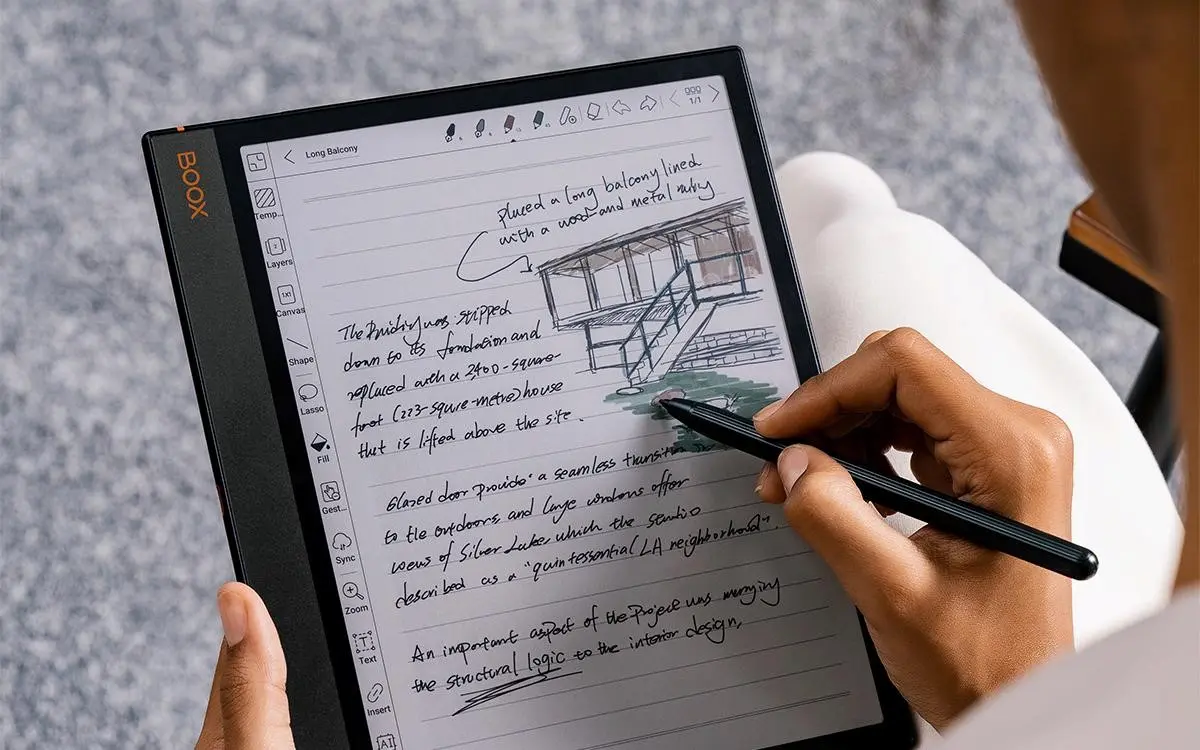 BOOX
Long Balcony
1/1
Temp...
Layers
Canvas
1X1
Shape
Lasso
Fill
Gest...
Sync
Zoom
Text
Insert
AI
placed a long balcony lined
with a wood and metal railing
The Building was stripped
down to its foundation and
replaced with a 2,400-square-
foot (223-squre-metre) house
that is lifted above the site.
Glazed door provide a seamless transiti
to the outdoors, and large windows offer
views of Silver Lake which the studio
described as a "quintessential LA neighborhood".
An important aspect of the Project was marrying
the structural logic to the interior design,